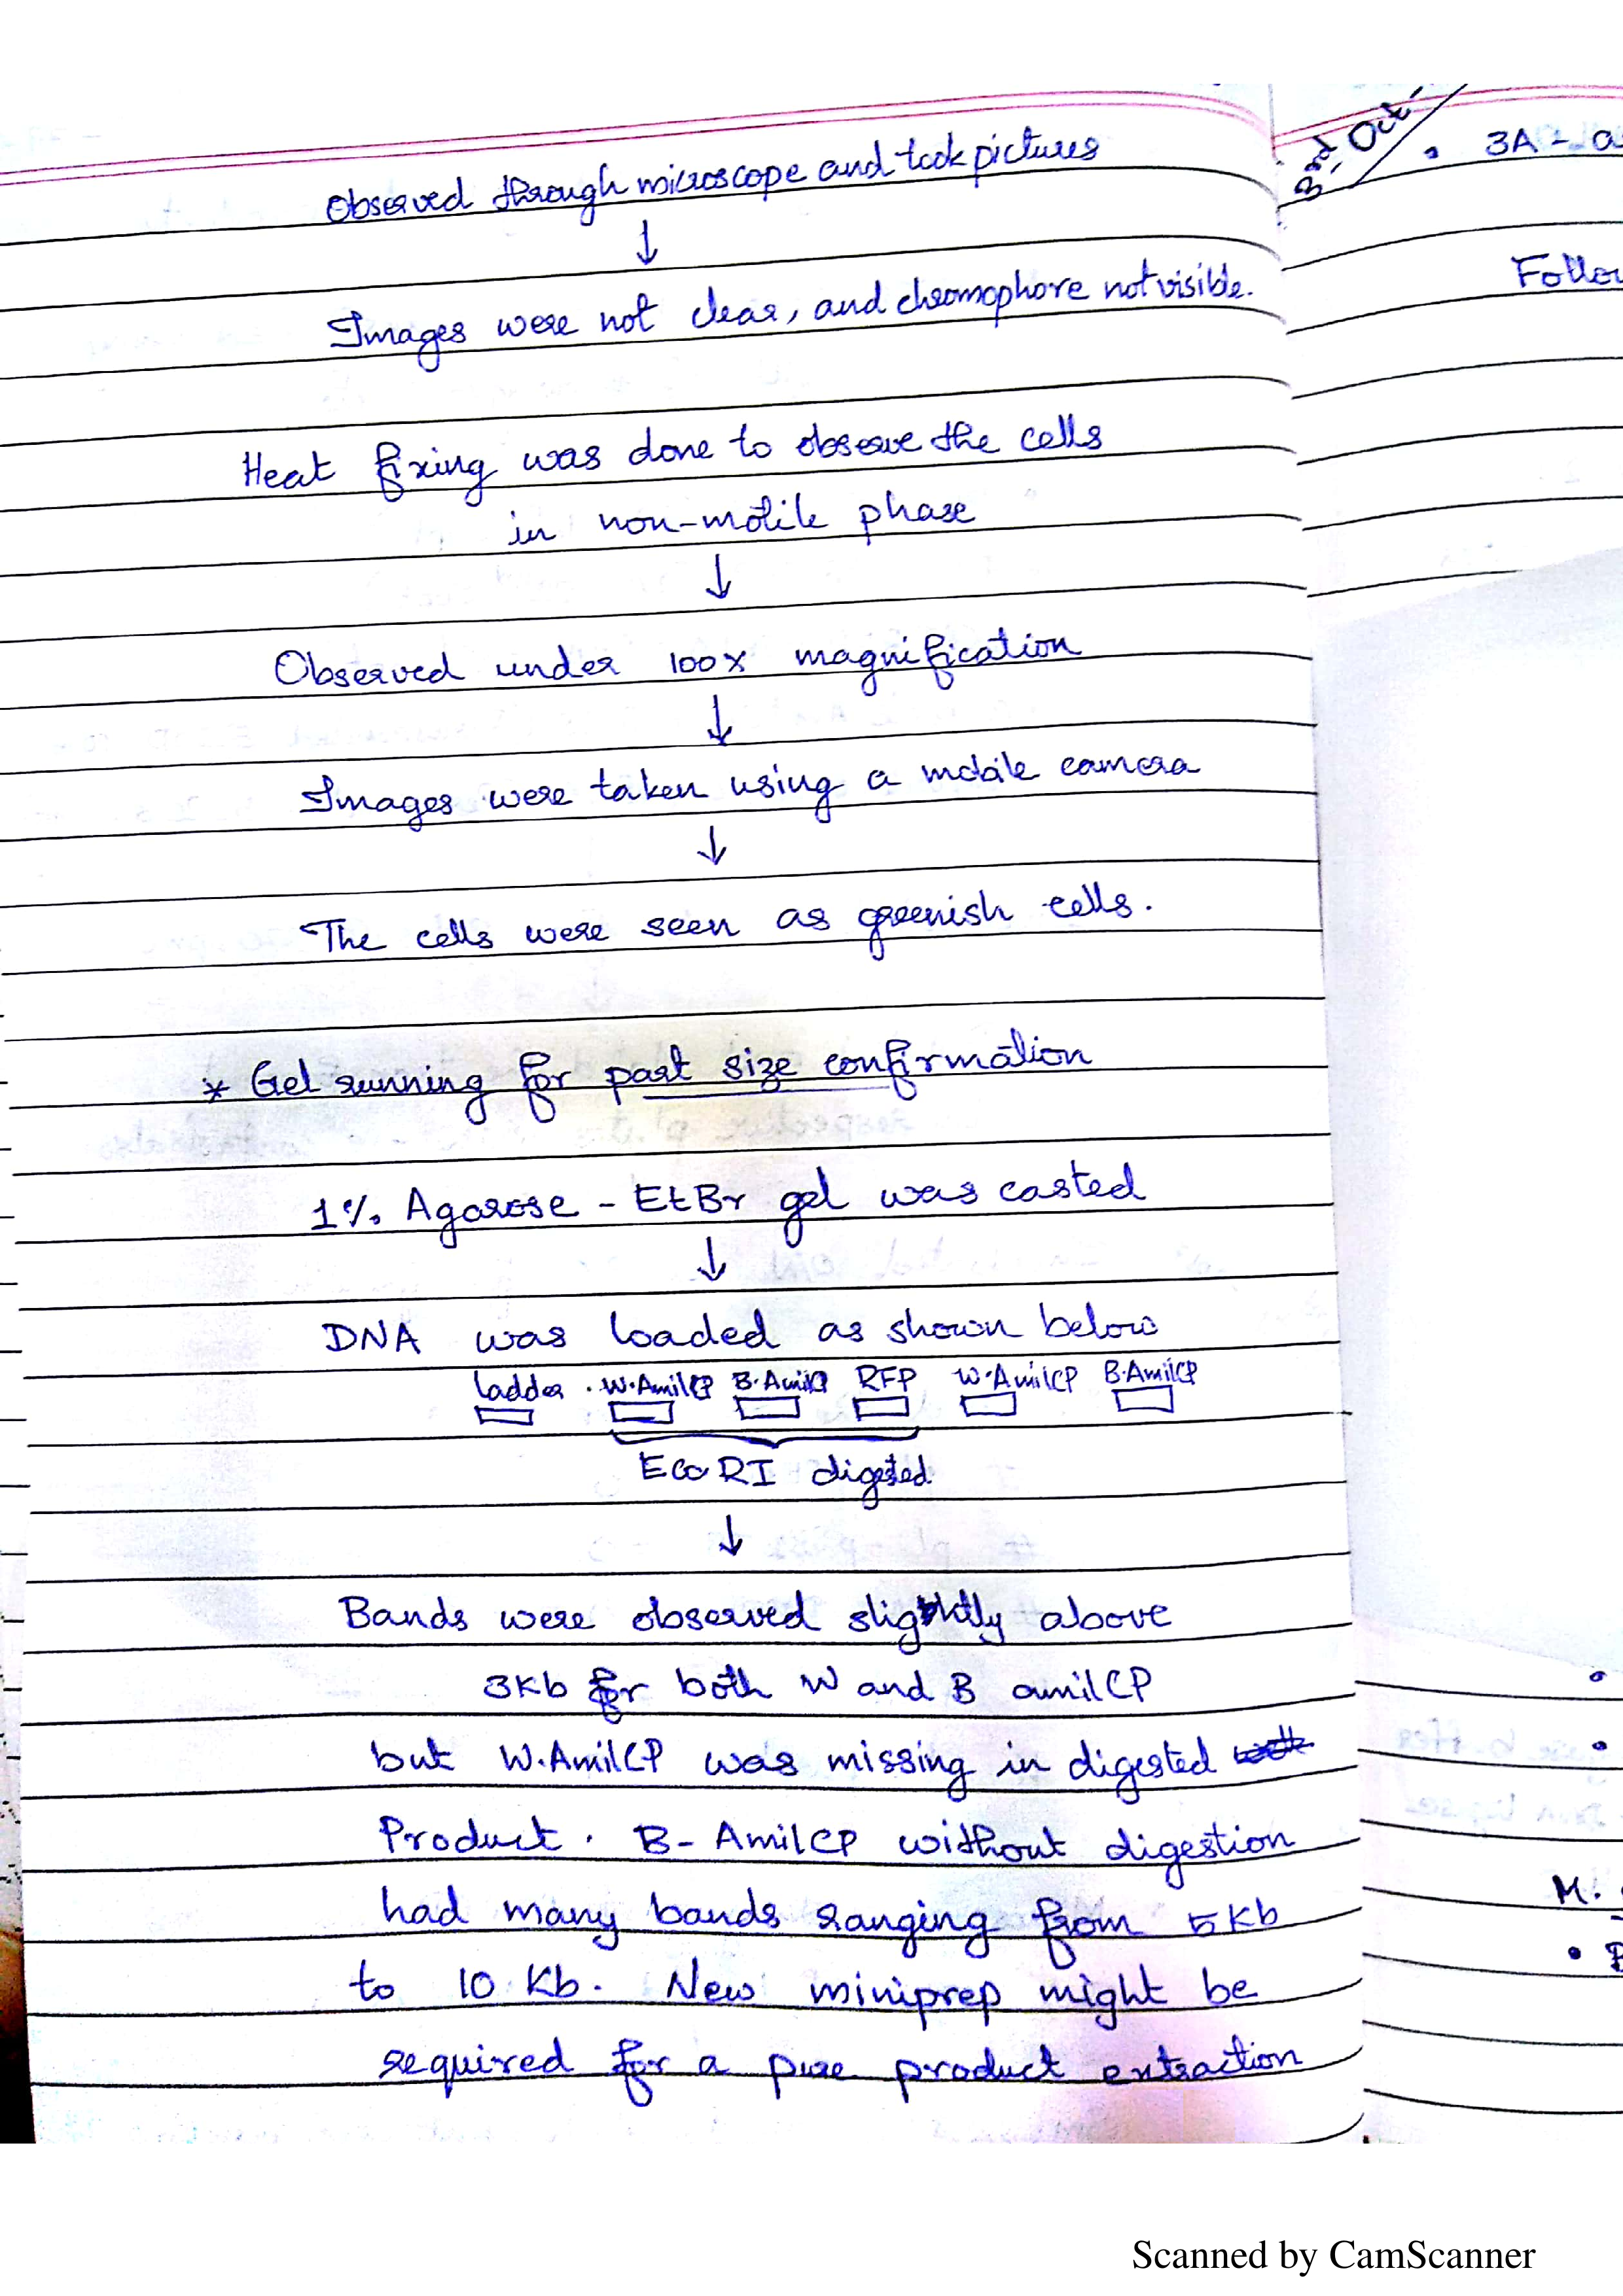 Observed through microscope and took pictures
↓
Images were not clear, and chromophore not visible.
Heat fixing was done to observe the cells
in non-motile phase
↓
Observed under 100x magnification
↓
Images were taken using a mobile camera
↓
The cells were seen as greenish cells.
* Gel running for part size confirmation
1% Agarose - EtBr gel was casted
↓
DNA was loaded as shown below
ladder . W.AmilCP B.AmilCP RFP W.AmilCP B.AmilCP
EcoRI digested
↓
Bands were observed slightly above
3Kb for both W and B amilCP
but W.AmilCP was missing in digested
Product. B-AmilCP without digestion
had many bands ranging from 5Kb
to 10 Kb. New miniprep might be
required for a pure product extraction
3rd Oct
• 3A - a
Follow
M.
Scanned by CamScanner